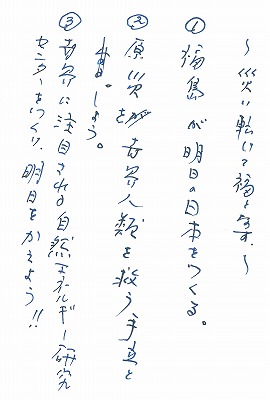 ～災い転じて福と為す～
① 福島が明日の日本をつくる。
② 原災を世界人類を救う手立と
しよう。
③ 世界に注目される自然エネルギー研究
センターをつくり、明日をかえよう!!